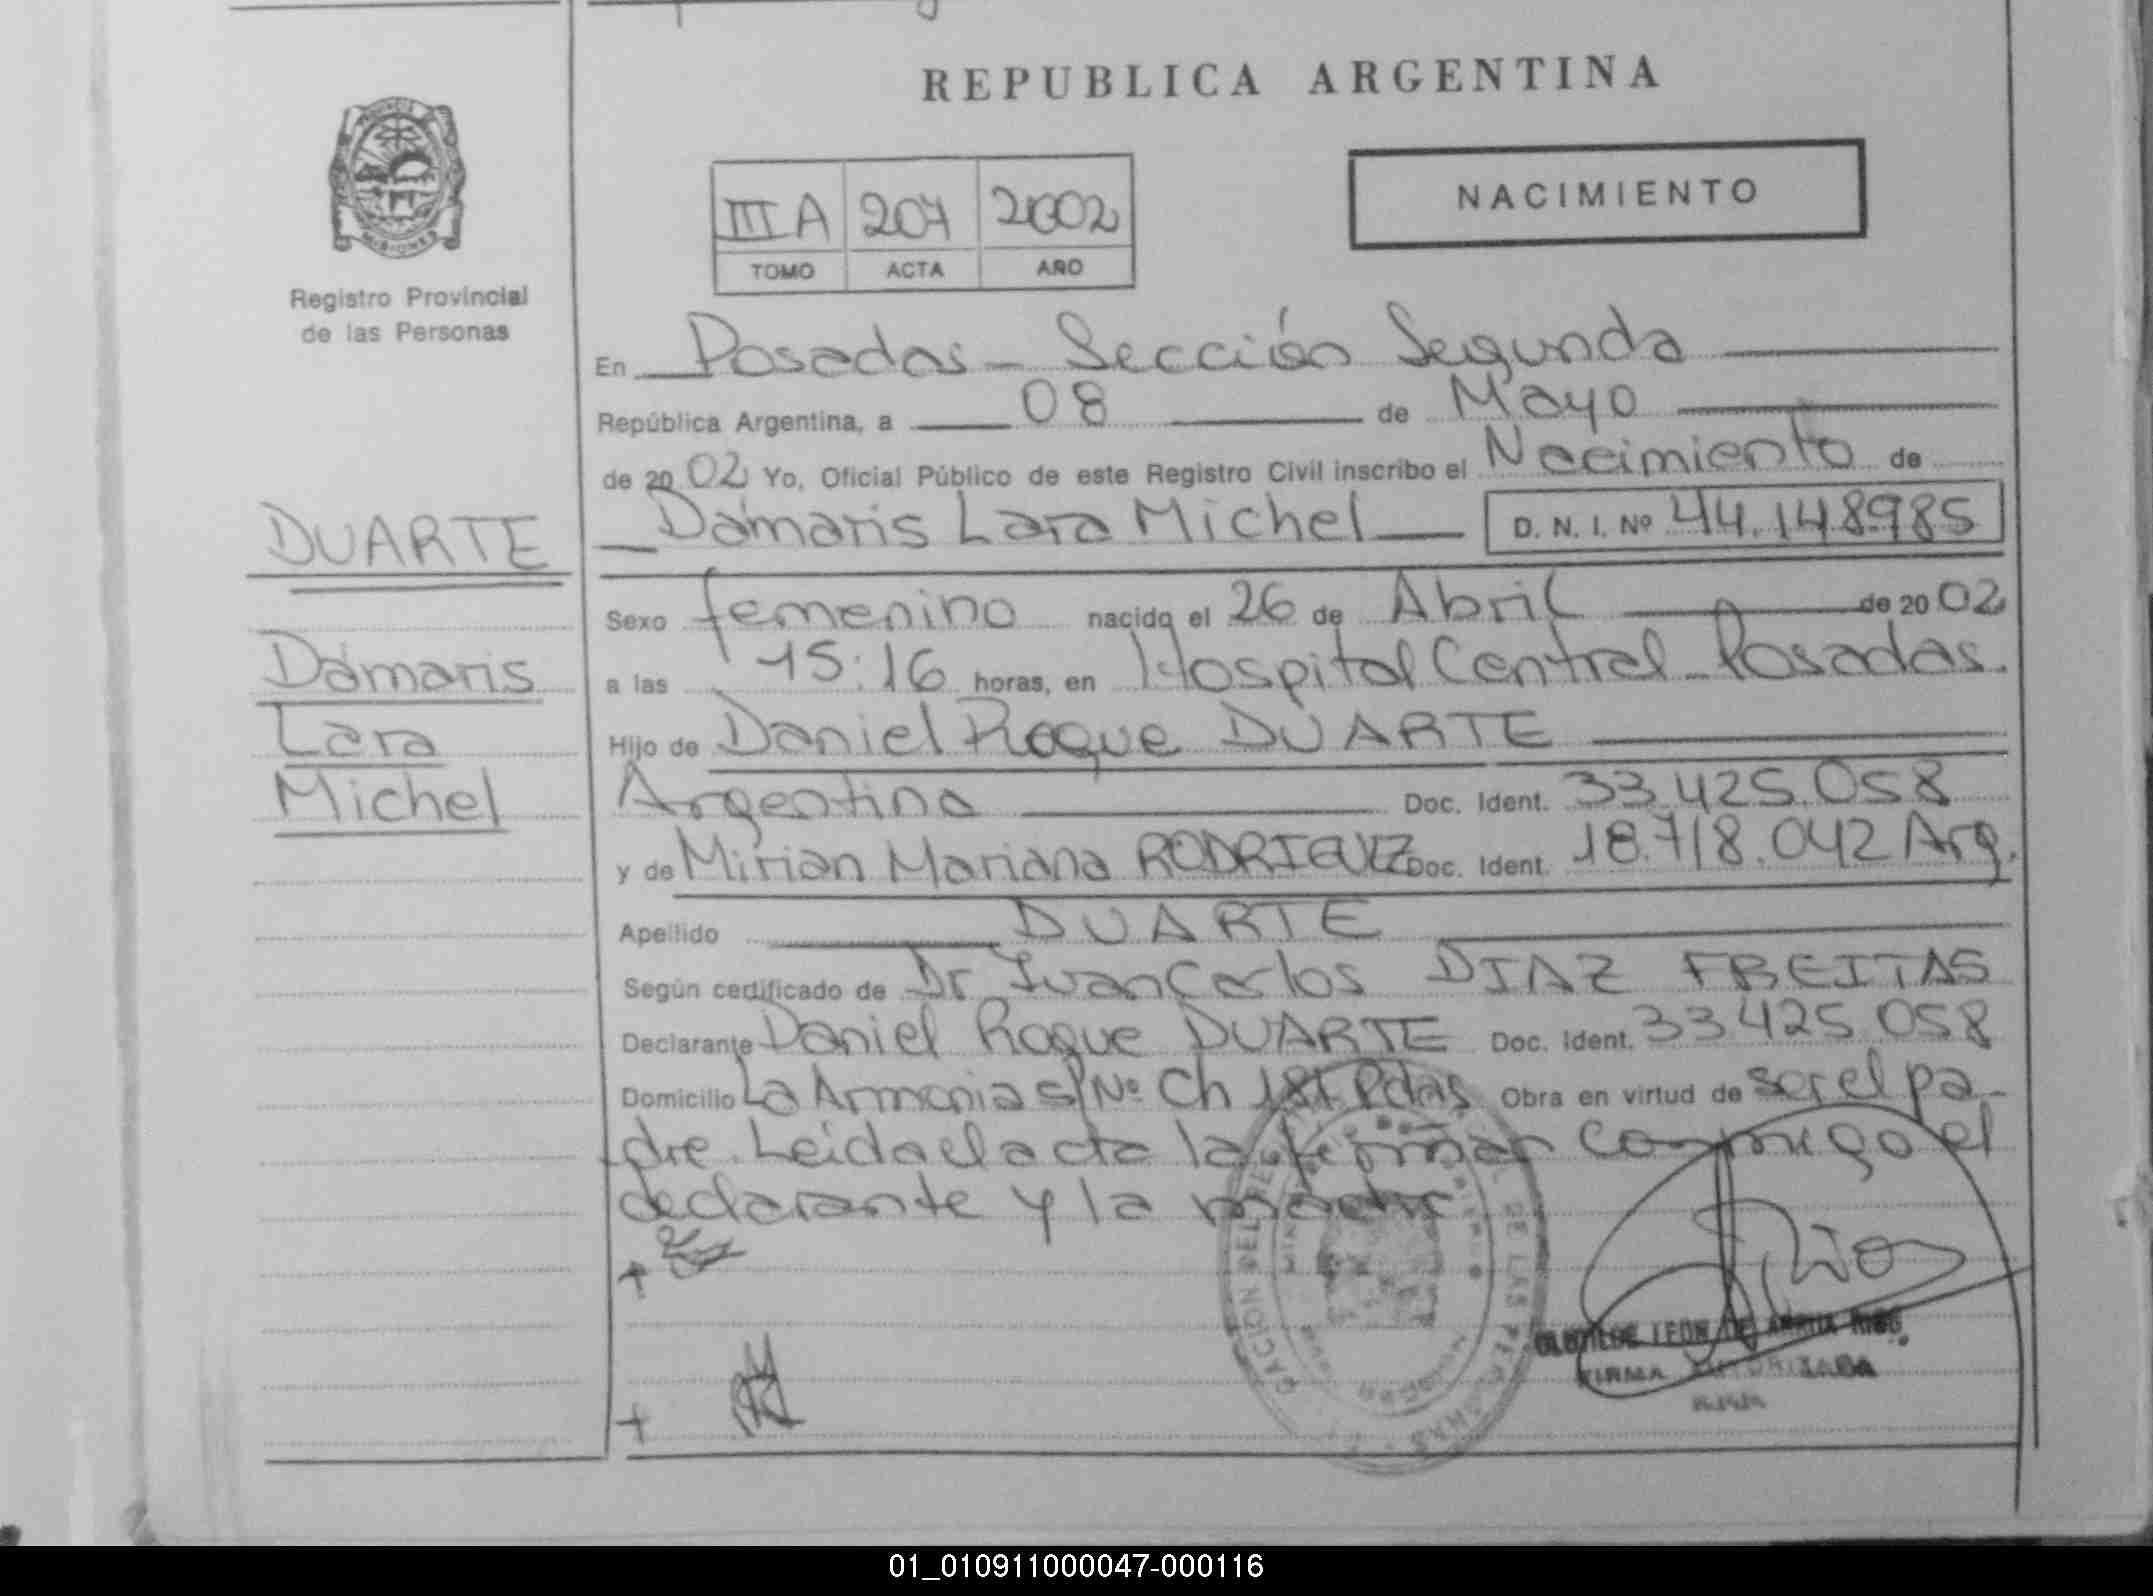 REPUBLICA ARGENTINA
PROVINCIA
MISIONES
Registro Provincial
de las Personas
NACIMIENTO
III A 207 2002
TOMO ACTA AÑO
En Posadas - Sección Segunda
República Argentina, a 08 de Mayo
de 2002 Yo, Oficial Público de este Registro Civil inscribo el Nacimiento de
Dámaris Lara Michel D. N. I. Nº 44.148.985
DUARTE
Dámaris
Lara
Michel
Sexo femenino nacido el 26 de Abril de 2002
a las 15:16 horas, en Hospital Central Posadas.
Hijo de Daniel Roque DUARTE
Argentino Doc. Ident. 33.425.058
y de Mirian Mariana RODRIGUEZ Doc. Ident. 18.718.042 Arg.
Apellido DUARTE
Según certificado de Dr Juan Carlos DIAZ FREITAS
Declarante Daniel Roque DUARTE Doc. Ident. 33.425.058
Domicilio La Armonia S/Nº Ch 181 Pdas Obra en virtud de ser el pa-
dre. Leida el acta la firman conmigo el
declarante y la madre
DE LAS PERSONAS
FIRMA AUTORIZADA
01_010911000047-000116